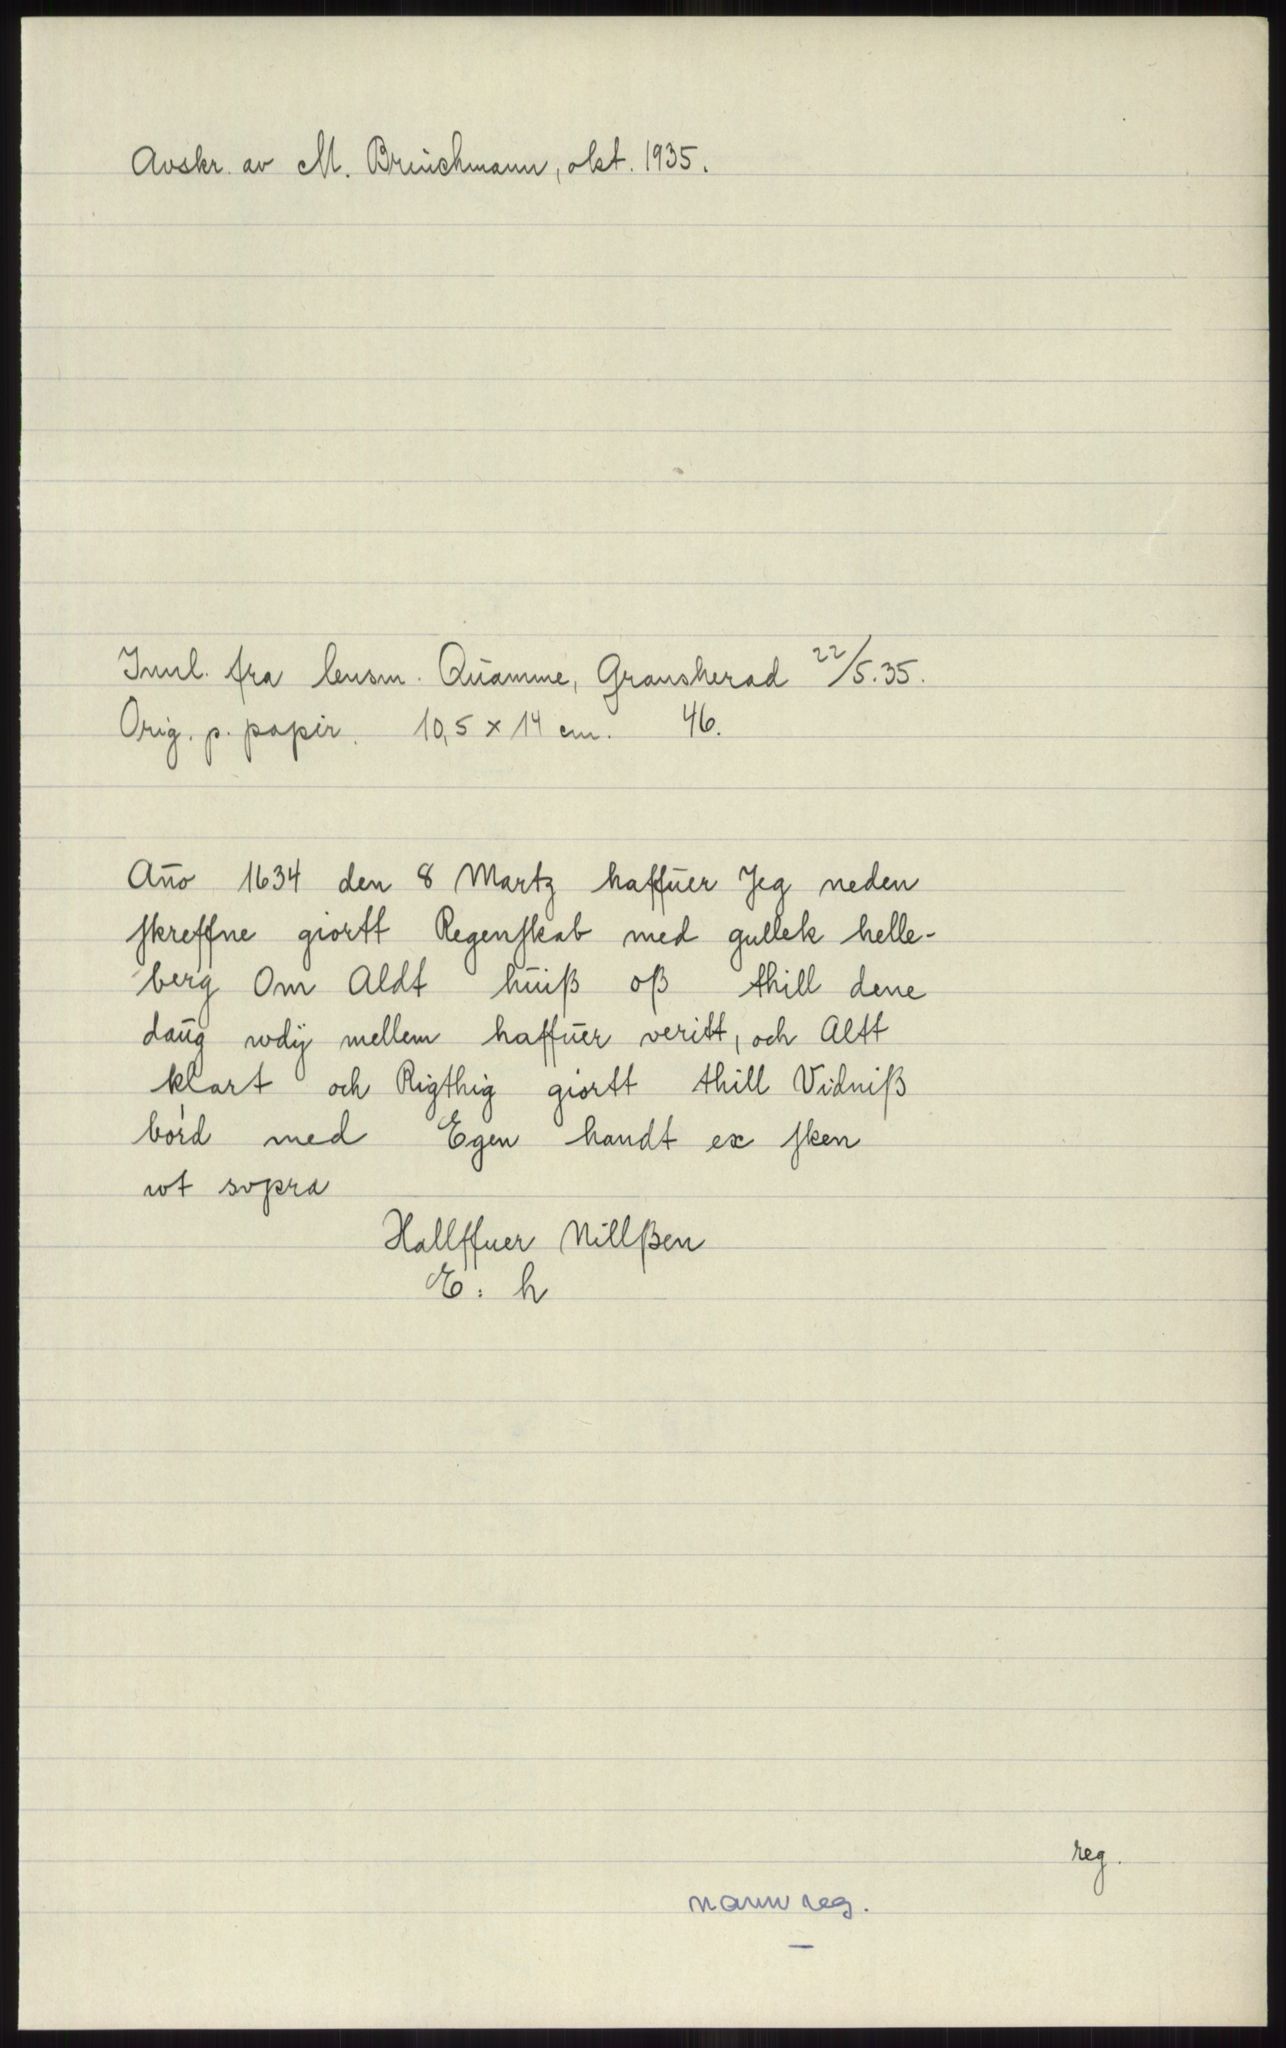 Avskr. av M. Brinchmann, okt. 1935.
Innl. fra lensm. Quamme, Gransherad 22/5.35.
Orig. p. papir. 10,5 x 14 cm. 46.
Año 1634 den 8 Martz haffuer Jeg neden
skreffne giortt Regenskab med gullek helle-
berg Om Aldt huiß oß thill dene
daug wdij mellem haffuer veritt, och Altt
klart och Rigthig giortt thill Vidniß
bórd med Egen handt ex sken
wt sopra
Hallffuer Nillßen
E: h
reg.
navnreg.